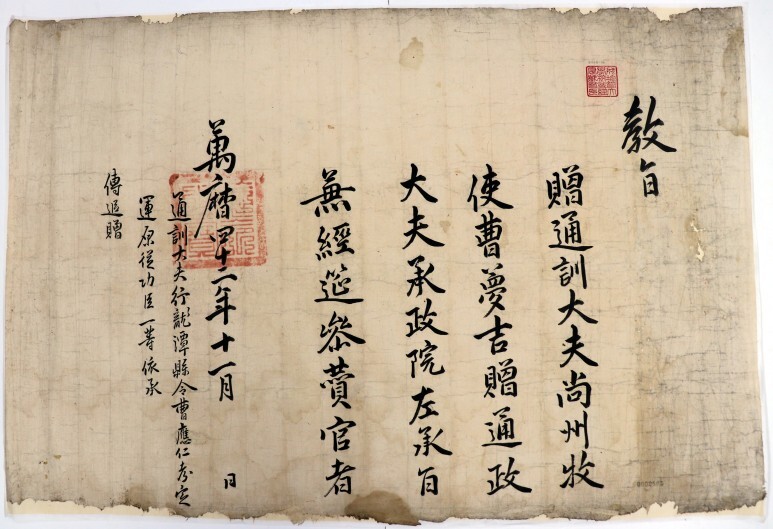 教旨
贈通訓大夫尚州牧
使曹夢吉贈通政
大夫承政院左承旨
兼經筵參贊官者
萬曆四十二年十一月 日
通訓大夫行龍潭縣令曹應仁考定
運原從功臣一等依承
傳追贈